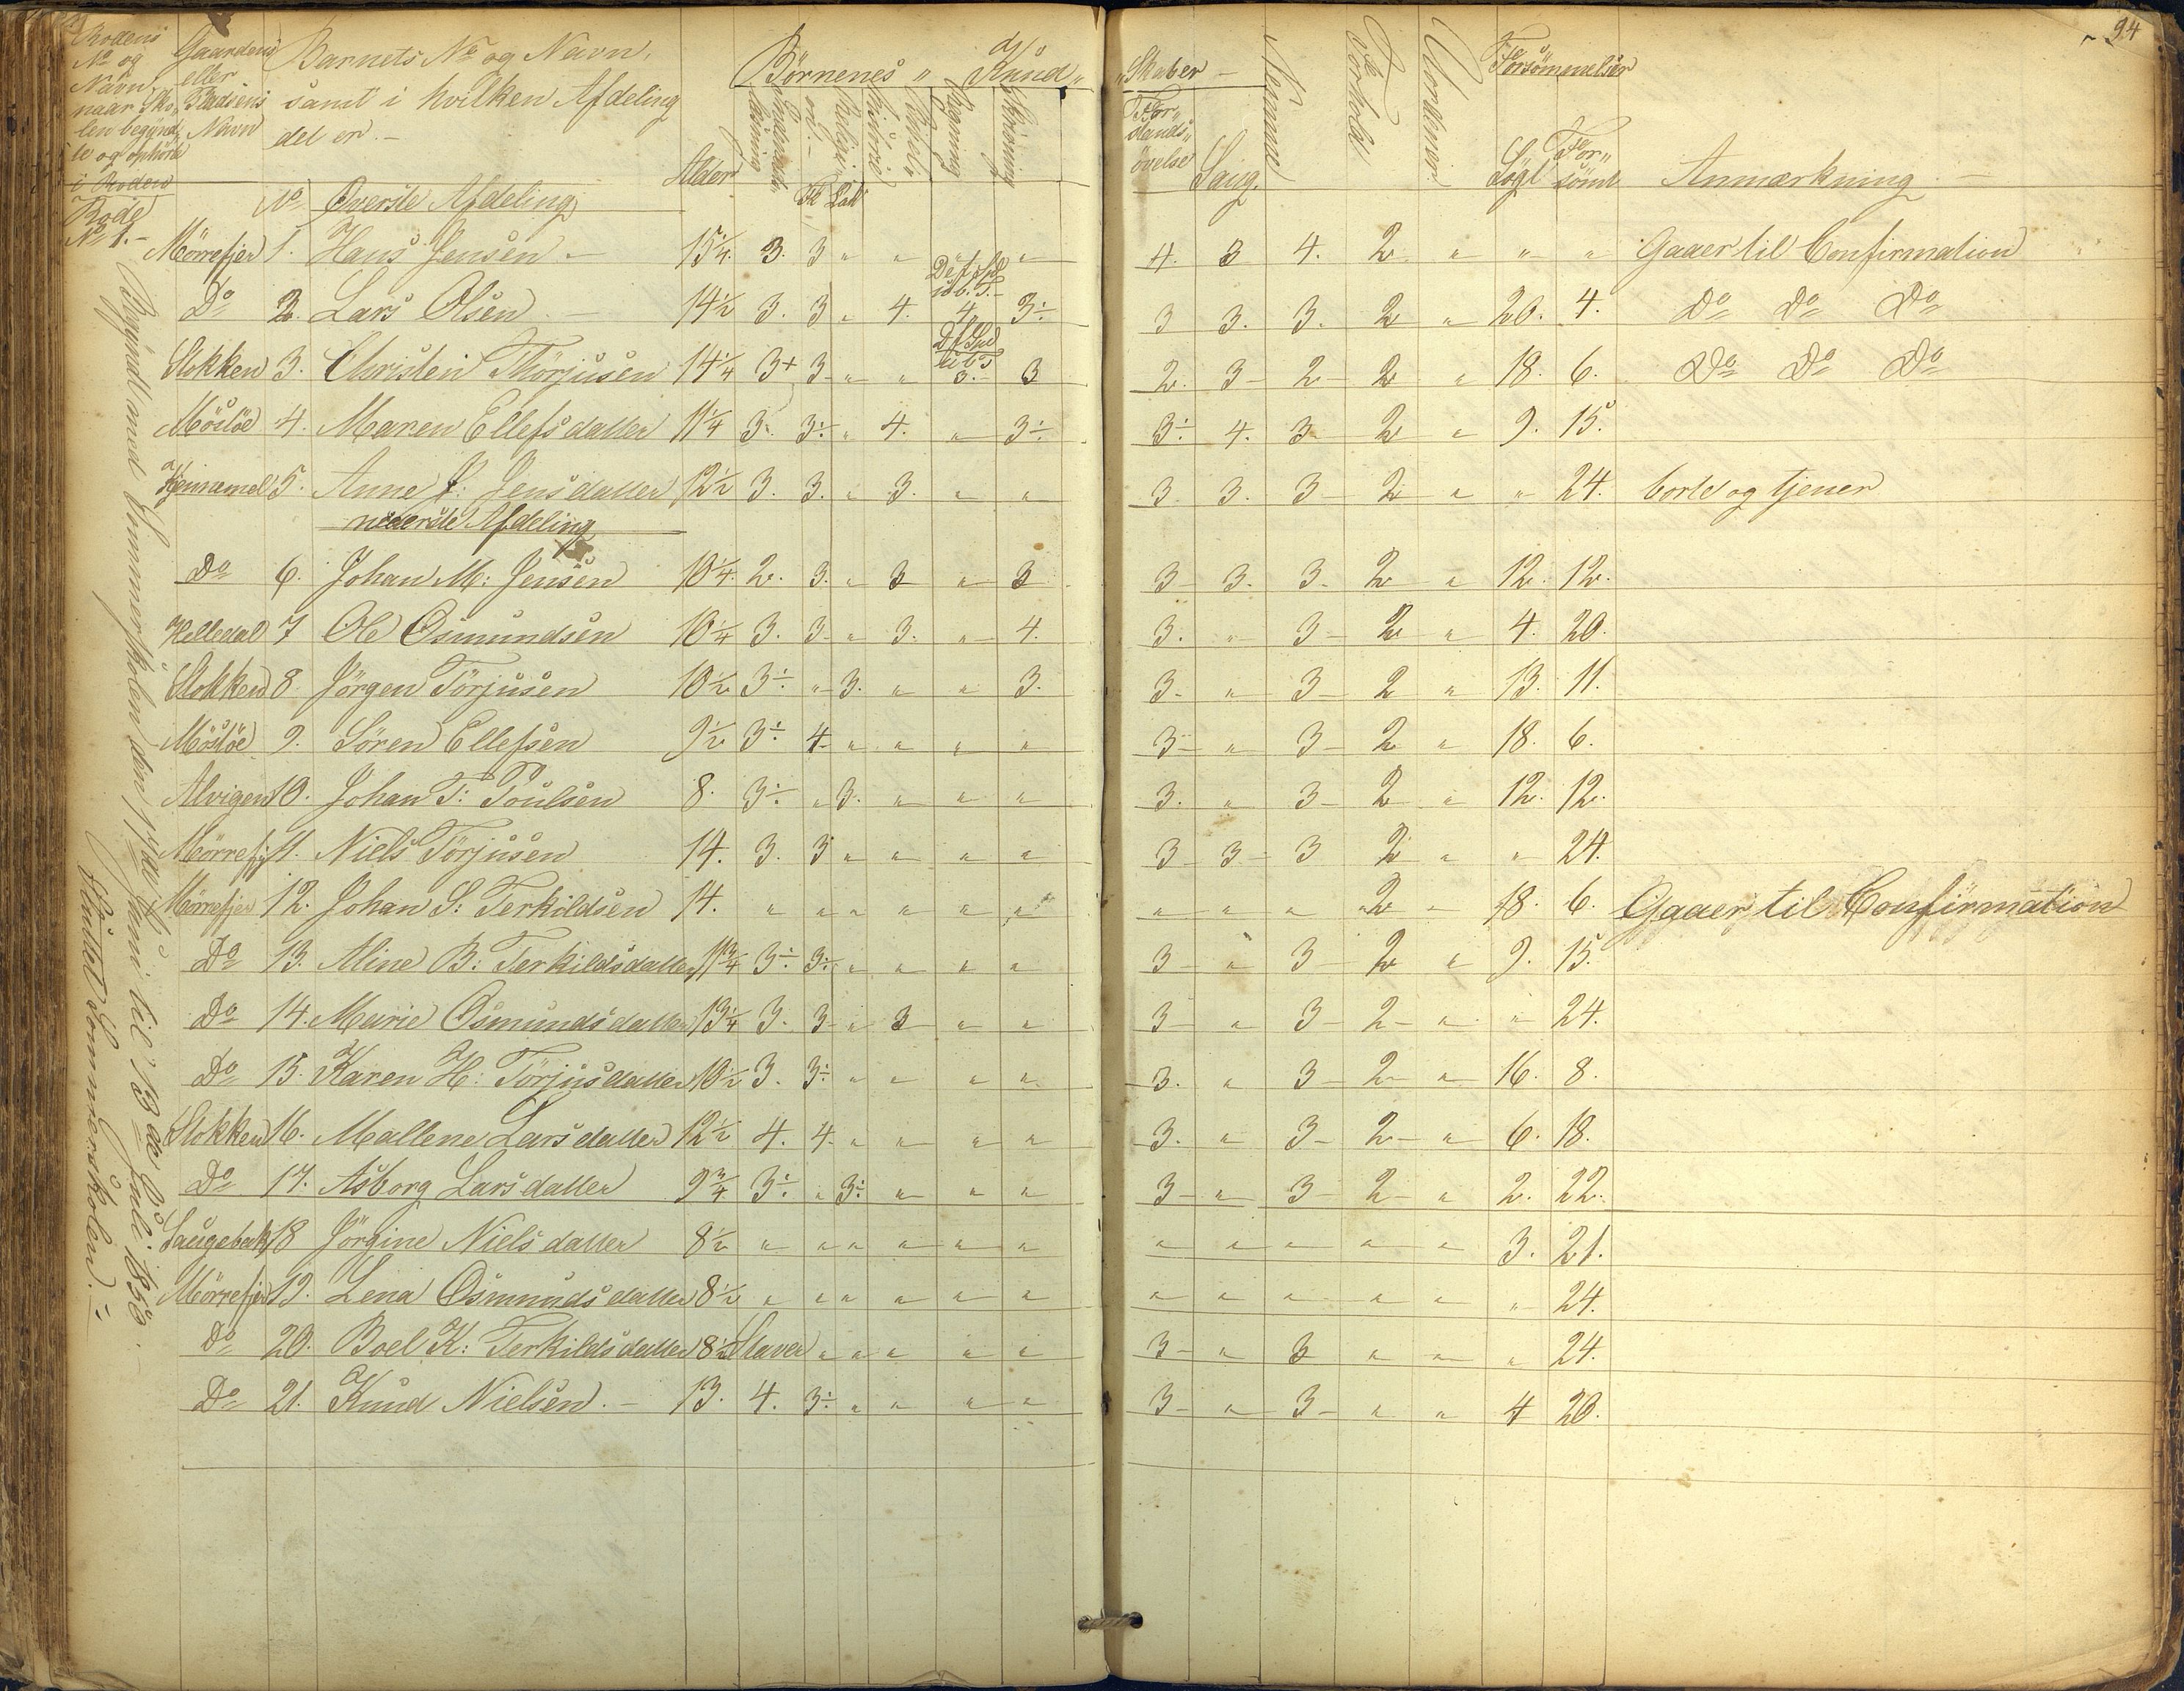 94
Rodens No og Navn, naar Skolen begynd„te og ophörte i Roden
Gaardens eller Pladsens Navn
Barnets No og Navn, samt i hvilken Afdeling det er. –
Alder
Börnenes Kund„
„Skaber –
Indenads læsning
Religi
Bibel„
Regning
Skrivning
For„stands„övelse
Sang.
Nemme
Forhold
Forsömmelser
Sögt
For„sömt
Anmærkning –
Rode No 1. –
No Överste Afdeling
Mörrefjer 1. Hans Jensen – 15¼. 3. 3 „ „ „ „ 4. 3 4. 2 „ „ „ Gaaer til Confirmation
Do 2. Lars Olsen – 14½ 3. 3 „ 4. 4. 3÷ 3 3. 3. 2 „ 20. 4. Do Do Do
Stokken 3. Christen Thörjusen 14¼ 3+ 3 „ „ 3. 3 2. 3 2 2 „ 18. 6. Do Do Do
Möslöe 4. Maren Ellefsdatter 11¼ 3. 3÷ „ 4. „ 3÷ 3÷ 4. 3 2 „ 9. 15.
5. Anne J: Jensdatter 12½ 3. 3. „ 3. „ „ 3 3. 3 2 „ „ 24. borte og tjener
nederste Afdeling
Do 6. Johan M: Jensen 10¼. 2. 3. „ 3 „ 3 3 3. 3. 2 „ 12. 12.
Helledal 7 Ole Osmundsen 10¼ 3. 3 „ 3. „ 4. 3. „ 3 2 „ 4. 20.
Stokken 8. Jörgen Törjusen 10½ 3÷ „ 3. „ „ 3. 3. „ 3 2 „ 13. 11.
Möslöe 9. Sören Ellefsen 9½ 3÷ 4 „ „ „ „ 3 „ 3 2 „ 18. 6.
Alvigen 10. Johan T: Poulsen 8. 3÷ „ 3. „ „ „ 3. „ 3 2 „ 12. 12.
Mörrefj 11. Niels Törjusen 14. 3. 3 „ „ „ „ 3 3 3 2 „ „ 24.
Mörrefjer 12. Johan S: Terkildsen 14. „ „ „ „ „ „ „ „ „ 2 „ 18. 6. Gaaer til Confirmation
Do 13. Aline B: Terkildsdatter 11¾ 3÷ 3÷ „ „ „ „ 3 „ 3 2 „ 9. 15.
Do 14. Marie Osmundsdatter 13¼ 3. 3 „ 3 „ „ 3 „ 3 2 „ „ 24.
Do 15. Karen H: Törjusdatter 10½ 3. 3÷ „ „ „ „ 3. „ 3 2 „ 16. 8.
Stokken 16. Mallene Larsdatter 12½ 4. 4. „ „ „ „ 3. „ 3 2 „ 6. 18.
Do 17. Asborg Larsdatter 9¾ 3÷ „ 3÷ „ „ „ 3 „ 3 2 „ 2. 22.
Saugebak 18 Jörgine Nielsdatter 8½ „ „ „ „ „ „ „ „ „ „ „ 3. 21.
Mörrefjer 19. Lena Osmundsdatter 8½ „ „ „ „ „ „ „ „ „ „ „ „ 24.
Do 20. Boel K: Terkildsdatter 8½ Staver „ „ „ „ „ 3 „ 3 „ „ „ 24.
Do 21. Knud Nielsen. – 13. 4. 3÷ „ „ „ „ 3 „ 3 „ „ 4 20.
Begyndt med Sommerskolen den Juni til 13de Juli 1858. –
Sluttet Sommerskolen. –